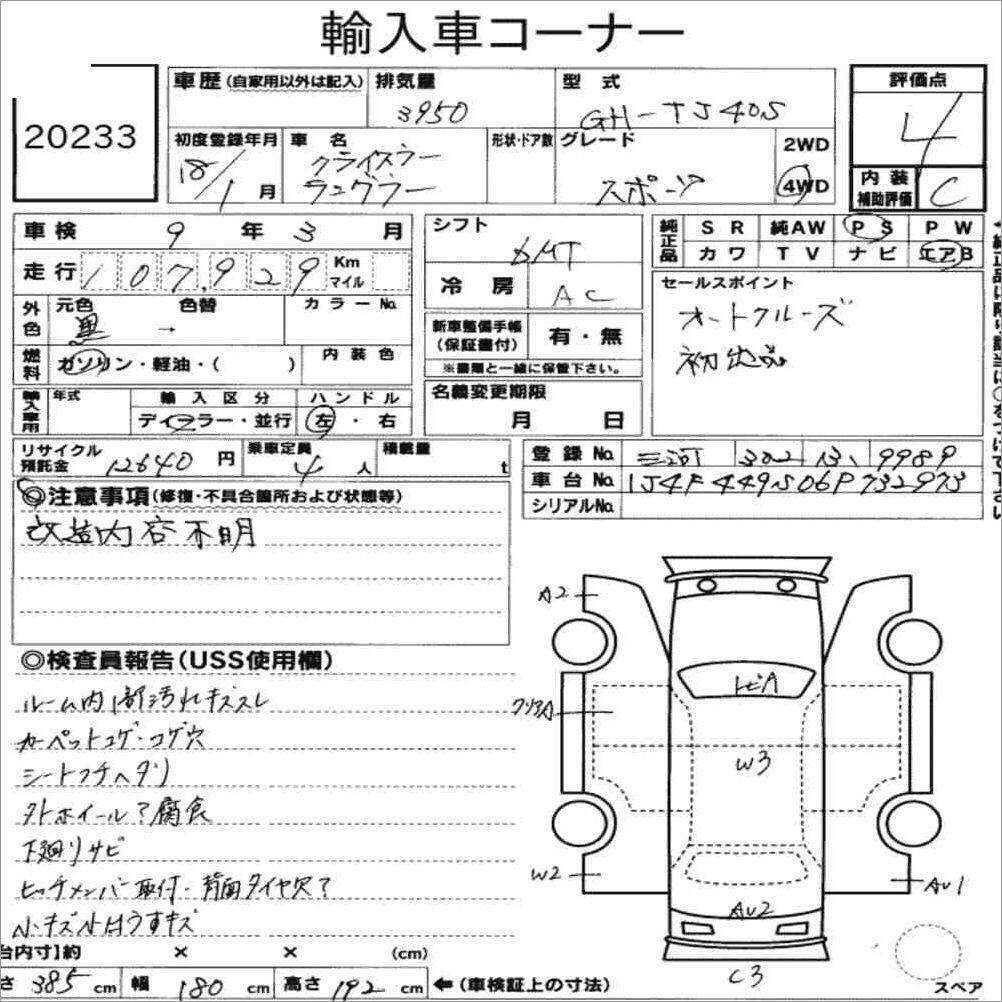 輸入車コーナー
20233
車歴 (自家用以外は記入) 排気量 3950
型式 GH-TJ40S
評価点 4
初度登録年月 18/1月
車名 クライスラー ラングラー
形状・ドア数
グレード スポーツ
2WD
4WD
内装補助評価 C
車検 9年3月
走行 107,929 Km マイル
外色 元色 黒 → 色替 カラーNo.
燃料 ガソリン・軽油・( ) 内装色
輸入車用 年式 輸入区分 ディーラー・並行 ハンドル 左・右
シフト 6MT
冷房 AC
新車整備手帳 (保証書付) 有・無
※書類と一緒に保管下さい。
名義変更期限 月 日
純正品 SR 純AW PS PW
カワ TV ナビ エアB
セールスポイント
オートクルーズ
初出品
リサイクル預託金 12640円 乗車定員 4人 積載量 t
登録No. 三河 302 13 9989
車台No. 1J4F449S06P732973
シリアルNo.
◎注意事項(修復・不具合箇所および状態等)
改造内容不明
◎検査員報告(USS使用欄)
ルーム内1部汚れキズスレ
カーペットコゲ・コゲ穴
シートフチヘタリ
外ホイール?腐食
下廻りサビ
ヒッチメンバー取付・背面タイヤ欠?
小キズ小はうすキズ
A2
クリアA
W2
トビA
W3
AU2
AU1
C3
スペア
台内寸】約 × × (cm)
さ 385 cm 幅 180 cm 高さ 192 cm ←(車検証上の寸法)